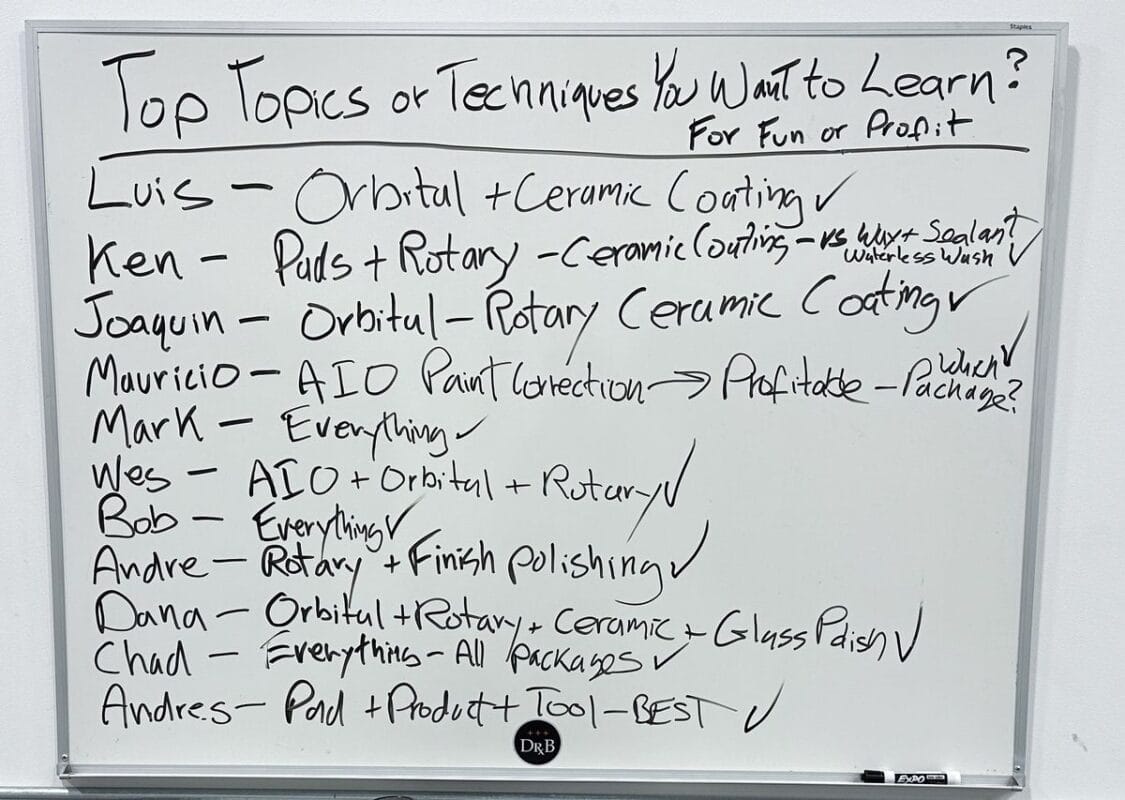 Staples
Top Topics or Techniques You Want to Learn?
For Fun or Profit
Luis - Orbital + Ceramic Coating ✓
Ken - Pads + Rotary - Ceramic Coating - vs Wax + Sealant
Waterless Wash ✓
Joaquin - Orbital - Rotary Ceramic Coating ✓
Mauricio - AIO Paint Correction → Profitable - Which Package? ✓
Mark - Everything ✓
Wes - AIO + Orbital + Rotary ✓
Bob - Everything ✓
Andre - Rotary + Finish Polishing ✓
Dana - Orbital + Rotary + Ceramic + Glass Polish ✓
Chad - Everything - All Packages ✓
Andres - Pad + Product + Tool - BEST ✓
DRB
EXPO